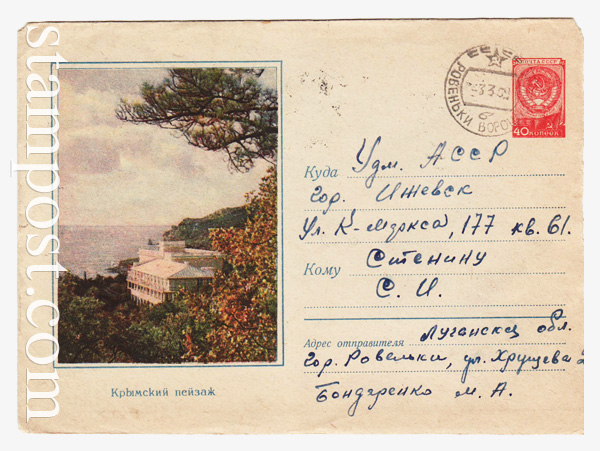 stampost.com
Крымский пейзаж
РОВЕНЬКИ ВОРО
ПОЧТА СССР
40 КОПЕЕК
Куда Удм. АССР
гор. Ижевск
Ул. К-Маркса, 177 кв. 61.
Кому Ситенину
С. И.
Адрес отправителя Луганская обл.
гор. Ровеньки, ул. Хрущева 2
Бондаренко М. А.